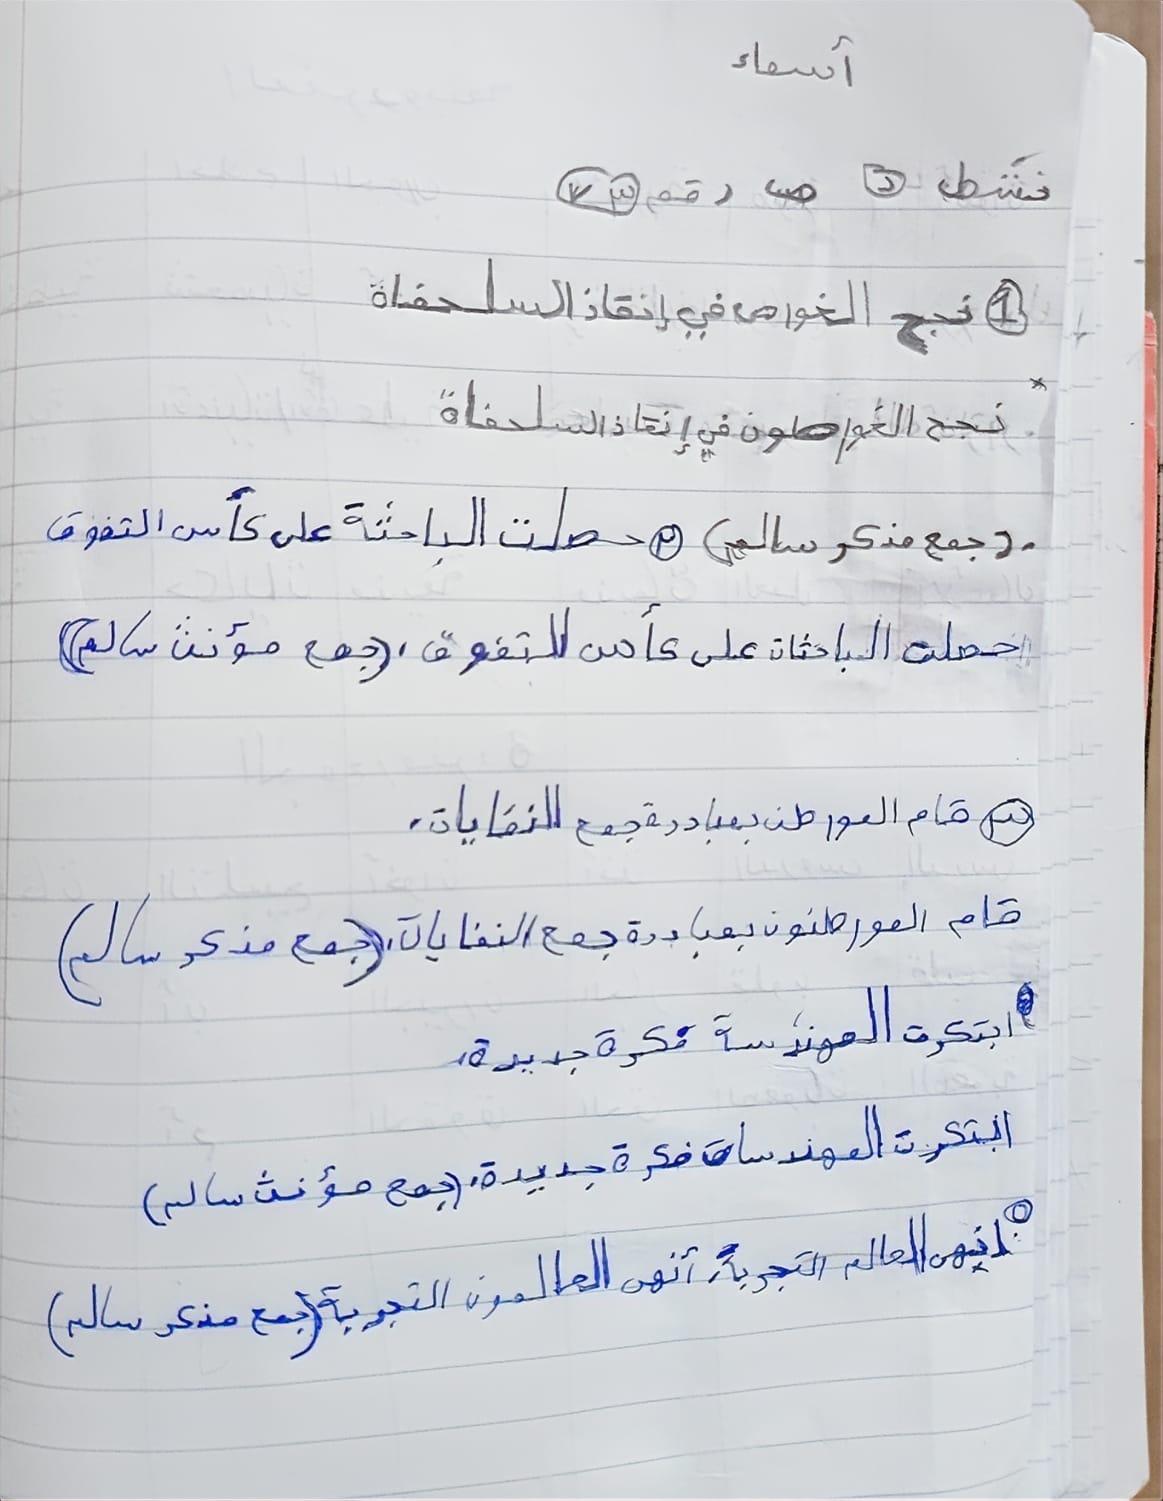 أسماء
نشط 3 ص رقم 73
1 نجح الغواص في إنقاذ السلحفاة
* نجح الغواصون في إنقاذ السلحفاة
. (جمع مذكر سالم) 2 حصلت الباحثة على كأس التفوق
حصلت الباحثات على كأس التفوق. (جمع مؤنث سالم)
3 قام المواطن بمبادرة جمع النفايات.
قام المواطنون بمبادرة جمع النفايات. (جمع مذكر سالم)
ابتكرت المهندسة فكرة جديدة.
ابتكرت المهندسات فكرة جديدة. (جمع مؤنث سالم)
5 أنهى العالم التجربة. أنهى العالمون التجربة (جمع مذكر سالم)